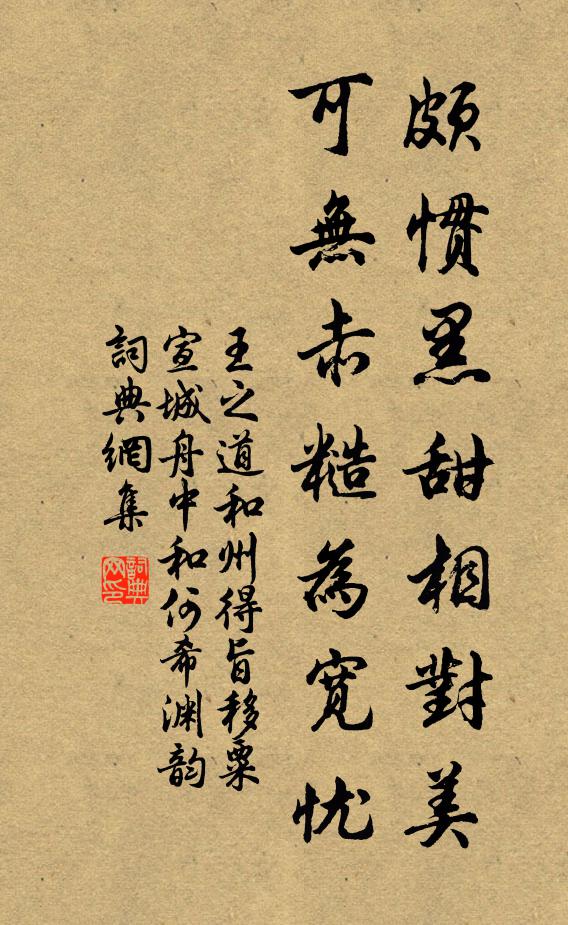 頗慣黑甜相對美
可無赤糙為寬忧
王之道和州得旨移粟
宣城舟中和何希渊韵
詞典網集
詞典
网印